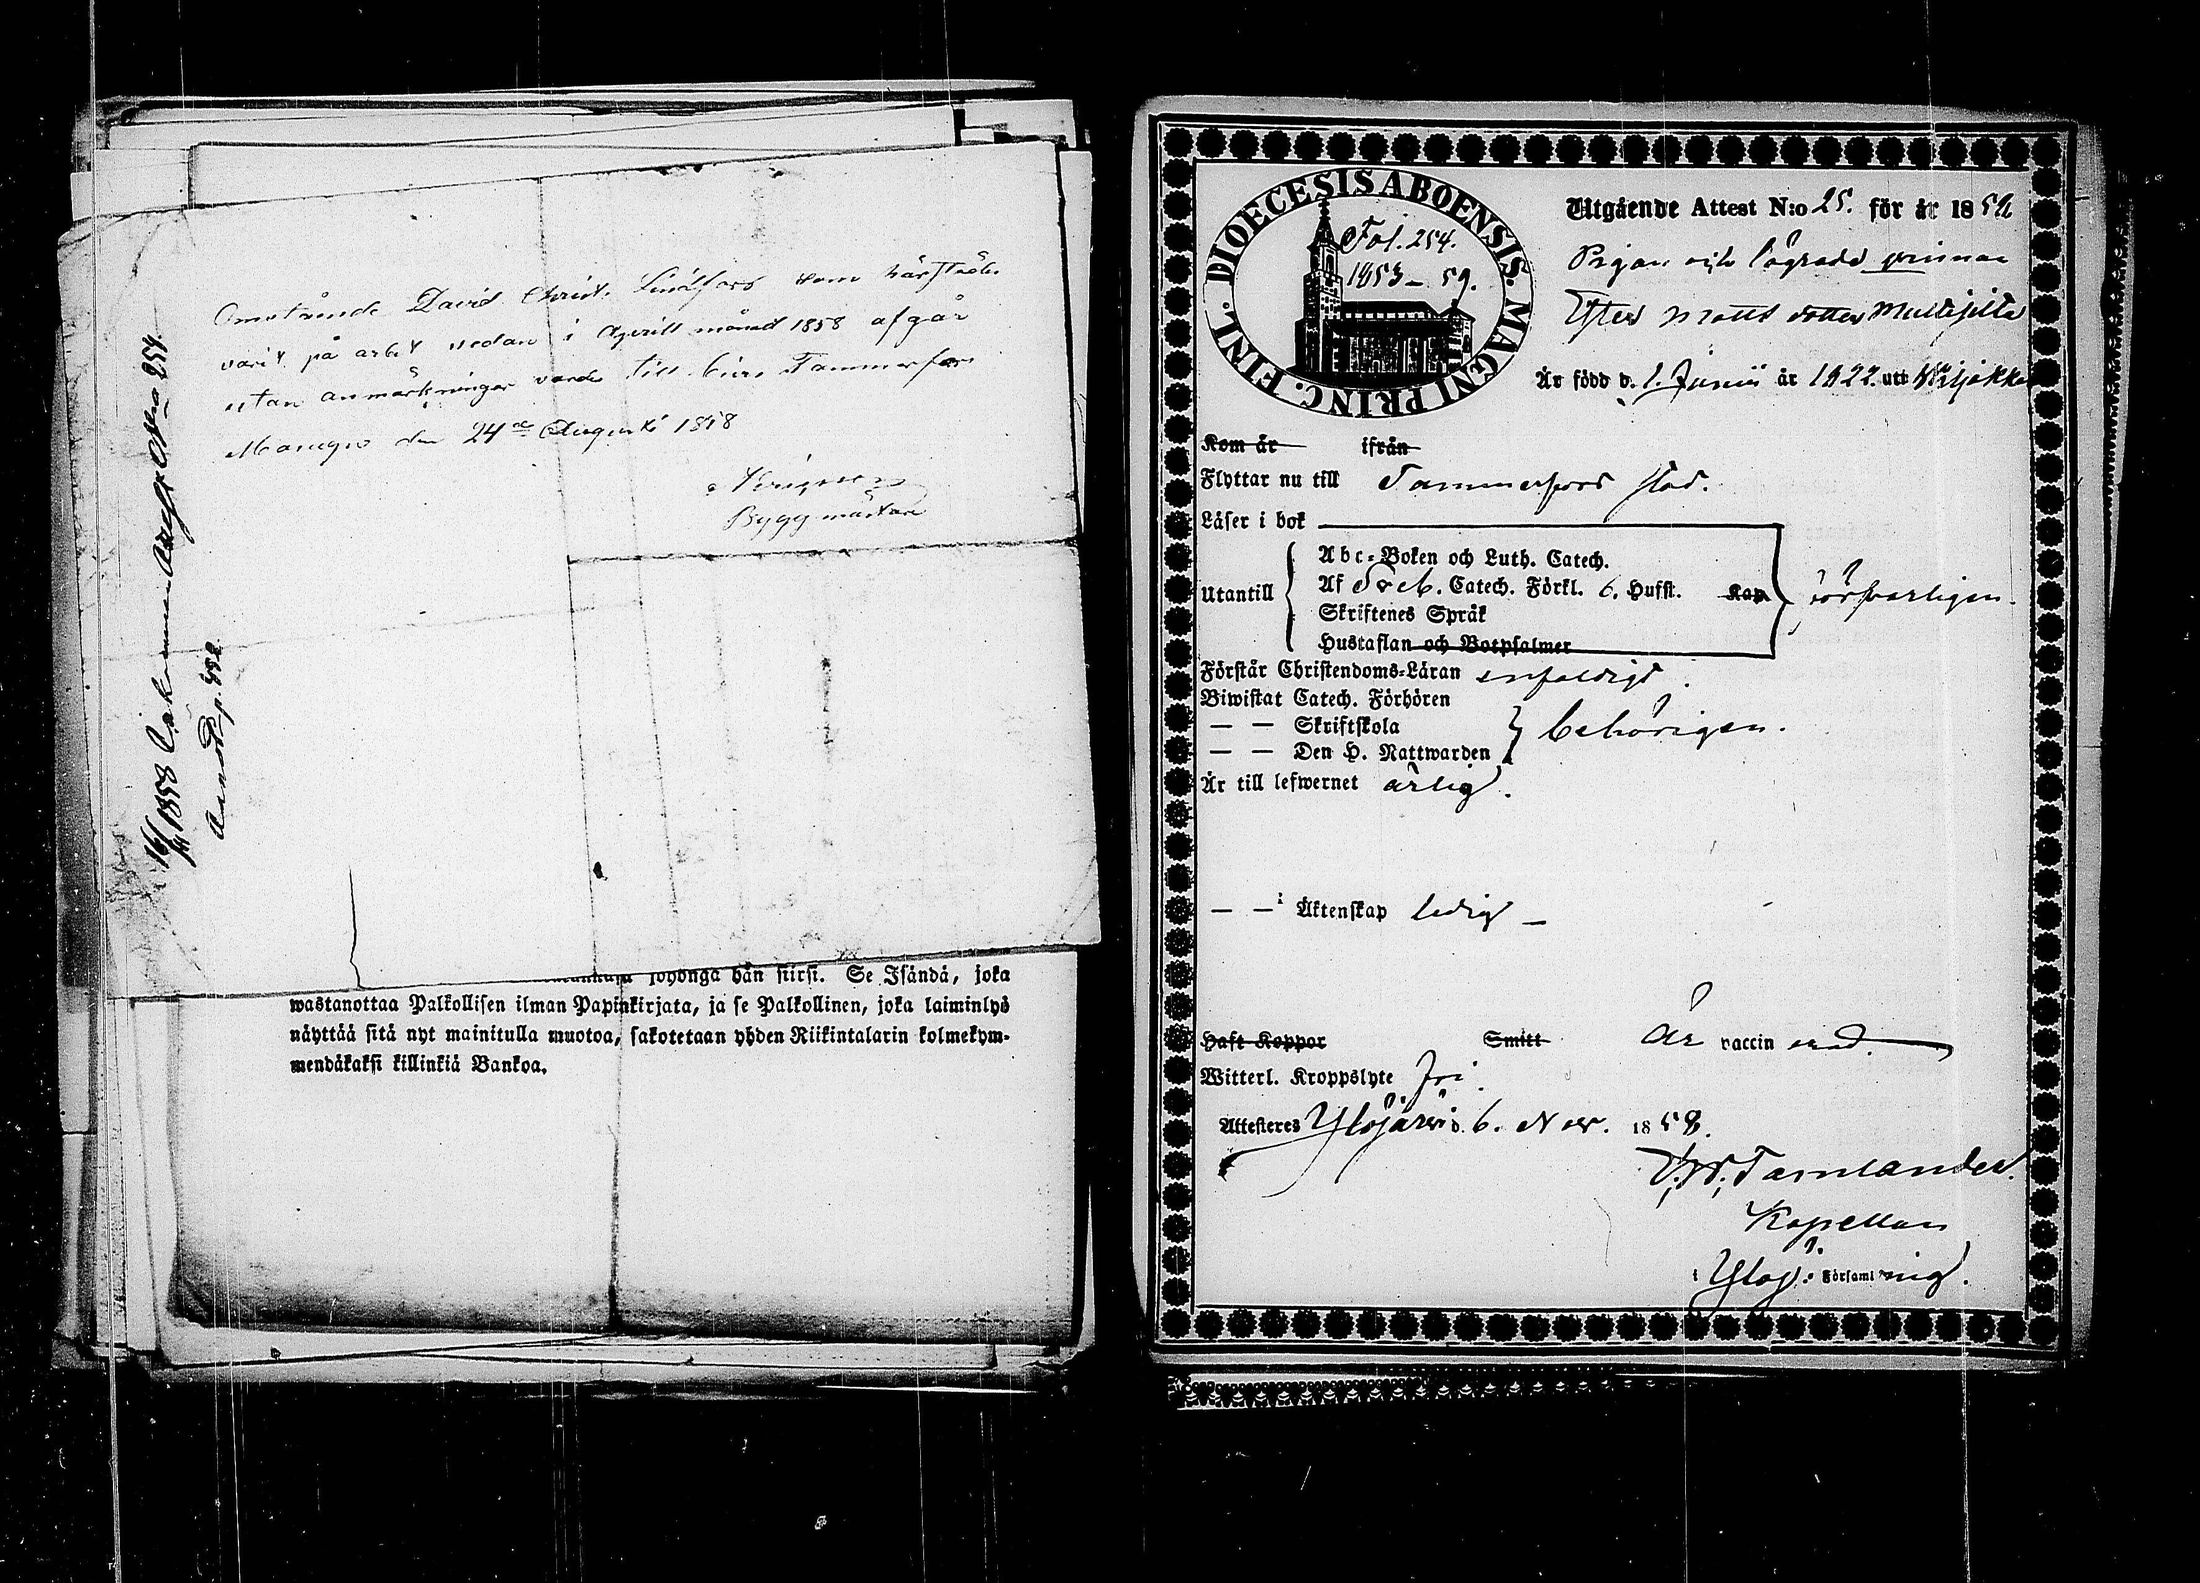 Omstående David Christ. Lindfors som härstädes
varit på arbet sedan i Aprill månad 1858 afgår
utan anmärkningar vards till Tammerfors
den 24de Augusti 1858
Byggmästare
1858
p. 492
hän siirsi. Se Isändä, joka
wastanottaa Palkollisen ilman Papinkirjata, ja se Palkollinen, joka laiminlyö
näyttää sitä nyt mainitulla muotoa, sakotetaan yhden Riikintalarin kolmekym-
mendäkaksi killinkiä Bankoa.
DIOECESIS ABOENSIS. MAGNI PRINC. FINL.
Fol. 254.
1853-59.
Utgående Attest N:o 25. för år 1858
Pigan och lägrade qvinnan
Ester Matts dotter Multisilta
Är född d. 1. Junii år 1822. uti
Kom år ifrån
Flyttar nu till Tammerfors stad.
Läser i bok
Utantill
Abc-Boken och Luth. Catech.
Af Sveb. Catech. Förkl. 6. Hufst. Kap
Skriftenes Språk
Hustaflan och Botpsalmer
försvarligen.
Förstår Christendoms-Läran enfaldigt.
Biwistat Catech. Förhören
— — Skriftskola
— — Den H. Nattwarden
behörigen.
Är till lefwernet ärlig.
— — i Äktenskap ledig —
Haft Koppor Smitt Är vaccinerad.
Witterl. Kroppslyte fri.
Attesteres Ylöjärvi d. 6. Nov. 1858.
Tamlander.
Kapellan
i Ylöj. Församlning.